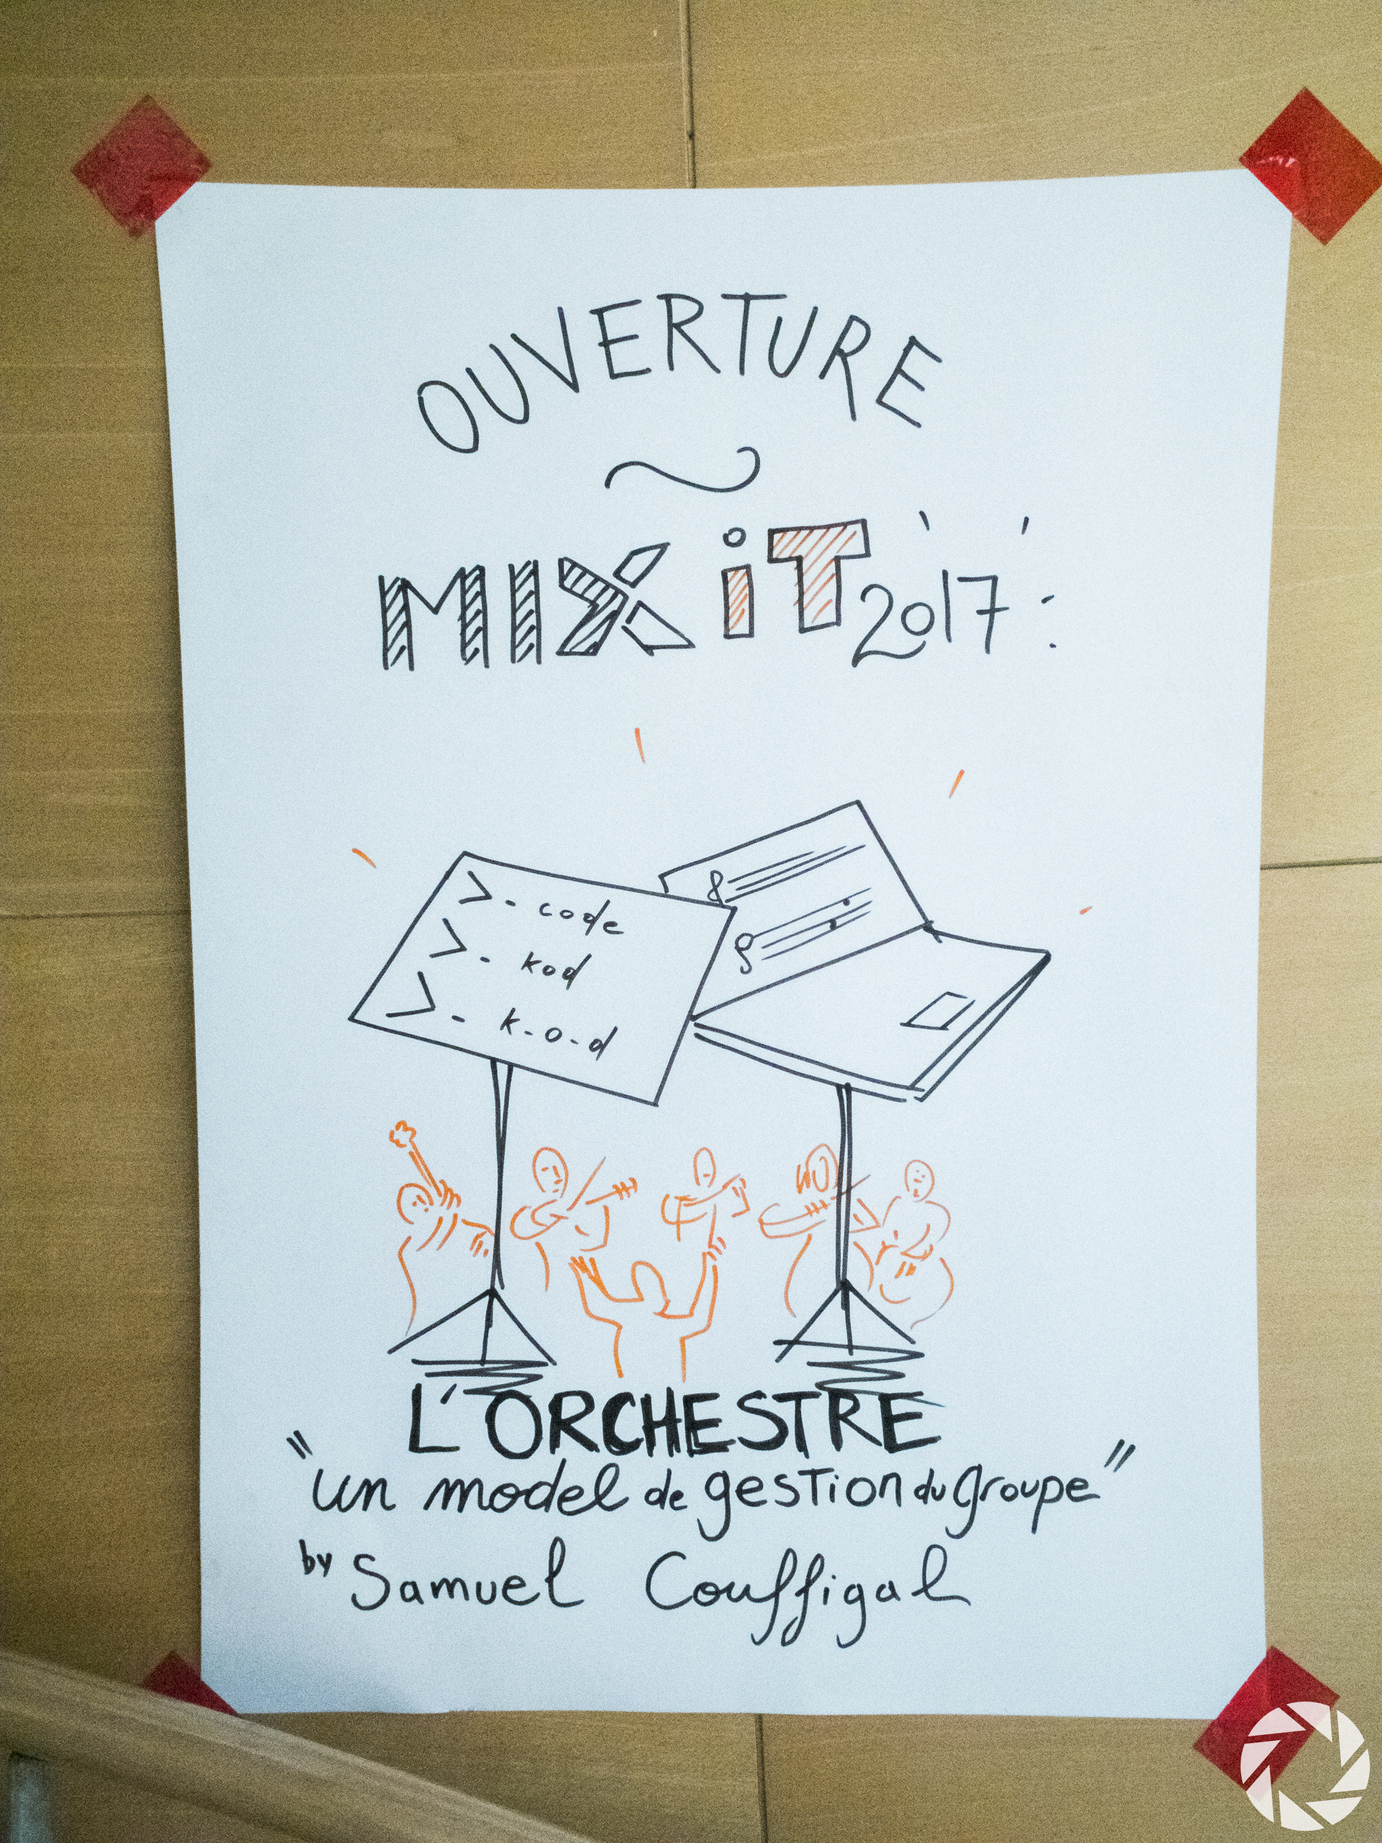 OUVERTURE
MIX iT 2017 :
>- code
>- kod
>- k-o-d
L'ORCHESTRE
"un model de gestion du groupe"
by Samuel Couffigal